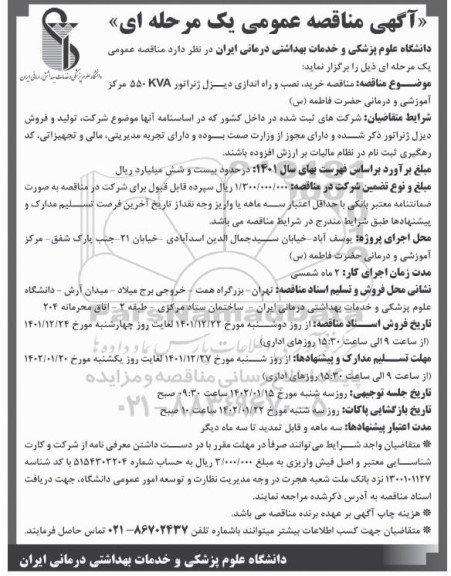 «آگهی مناقصه عمومی یک مرحله ای»
دانشگاه علوم پزشکی و خدمات بهداشتی درمانی ایران در نظر دارد مناقصه عمومی
یک مرحله ای ذیل را برگزار نماید:
موضوع مناقصه: مناقصه خرید، نصب و راه اندازی دیزل ژنراتور 550 KVA مرکز
آموزشی و درمانی حضرت فاطمه (س)
شرایط متقاضیان: شرکت های ثبت شده در داخل کشور که در اساسنامه آنها موضوع شرکت، تولید و فروش
دیزل ژنراتور ذکر شده و دارای مجوز از وزارت صمت بوده و دارای تجربه مدیریتی، مالی و تجهیزاتی، کد
رهگیری ثبت نام در نظام مالیات بر ارزش افزوده باشند.
مبلغ برآورد براساس فهرست بهای سال ۱۴۰۱: درحدود بیست و شش میلیارد ریال
مبلغ و نوع تضمین شرکت در مناقصه: ۱/۳۰۰/۰۰۰/۰۰۰ ریال سپرده قابل قبول برای شرکت در مناقصه به صورت
ضمانتنامه معتبر بانکی با حداقل اعتبار سه ماهه یا واریز وجه نقداز تاریخ آخرین فرصت تسلیم مدارک و
پیشنهادها طبق شرایط مندرج در شرایط مناقصه می باشد.
محل اجرای پروژه: یوسف آباد-خیابان سیدجمال الدین اسدآبادی -خیابان ۲۱-جنب پارک شفق- مرکز
آموزشی و درمانی حضرت فاطمه (س)
مدت زمان اجرای کار: ۲ ماه شمسی
نشانی محل فروش و تسلیم اسناد مناقصه: تهران- بزرگراه همت - خروجی برج میلاد - میدان آرش - دانشگاه
علوم پزشکی و خدمات بهداشتی درمانی ایران - ساختمان ستاد مرکزی - طبقه ۲ - اتاق محرمانه ۲۰۴
تاریخ فروش اسناد مناقصه: از روز دوشنبه مورخ ۱۴۰۱/۱۲/۲۲ لغایت روز چهارشنبه مورخ ۱۴۰۱/۱۲/۲۴
(از ساعت ۹ الی ساعت ۱۵:۳۰ روزهای اداری)
مهلت تسلیم مدارک و پیشنهادها: از روز شنبه مورخ ۱۴۰۱/۱۲/۲۷ لغایت روز یکشنبه مورخ ۱۴۰۲/۰۱/۲۰
(از ساعت ۹ الی ساعت ۱۵:۳۰ روزهای اداری)
تاریخ جلسه توجیهی: روزسه شنبه مورخ ۱۴۰۲/۰۱/۱۵ ساعت ۰۹:۳۰ صبح
تاریخ بازگشایی پاکات: روز سه شنبه مورخ ۱۴۰۲/۰۱/۲۲ ساعت ۱۰ صبح
مدت اعتبار پیشنهادها: سه ماهه و قابل تمدید تا سه ماه دیگر
※ متقاضیان واجد شرایط می‌توانند صرفاً در مهلت مقرر با در دست داشتن معرفی نامه از شرکت و کارت
شناسایی معتبر و اصل فیش واریزی به مبلغ ۳/۰۰۰/۰۰۰ ریال به حساب شماره ۵۱۵۴۳۰۳۲۰۴ با کد شناسه
۱۳۰۰۱۰۱۱۲۷ نزد بانک ملت شعبه هجرت در وجه مدیریت نظارت و توسعه امور عمومی دانشگاه، جهت دریافت
اسناد مناقصه به آدرس ذکرشده مراجعه نمایند.
※ هزینه چاپ آگهی بر عهده برنده مناقصه می باشد.
※ متقاضیان جهت کسب اطلاعات بیشتر میتوانند باشماره تلفن ۸۶۷۰۲۴۳۷-۰۲۱ تماس حاصل فرمایند.
دانشگاه علوم پزشکی و خدمات بهداشتی درمانی ایران